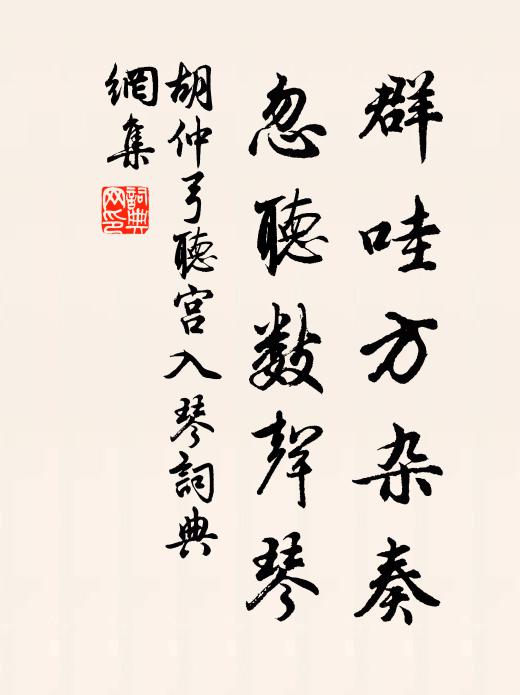 群哇方杂奏
忽聽數聲琴
胡仲弓聽宫入琴詞典
網集
詞典
网印